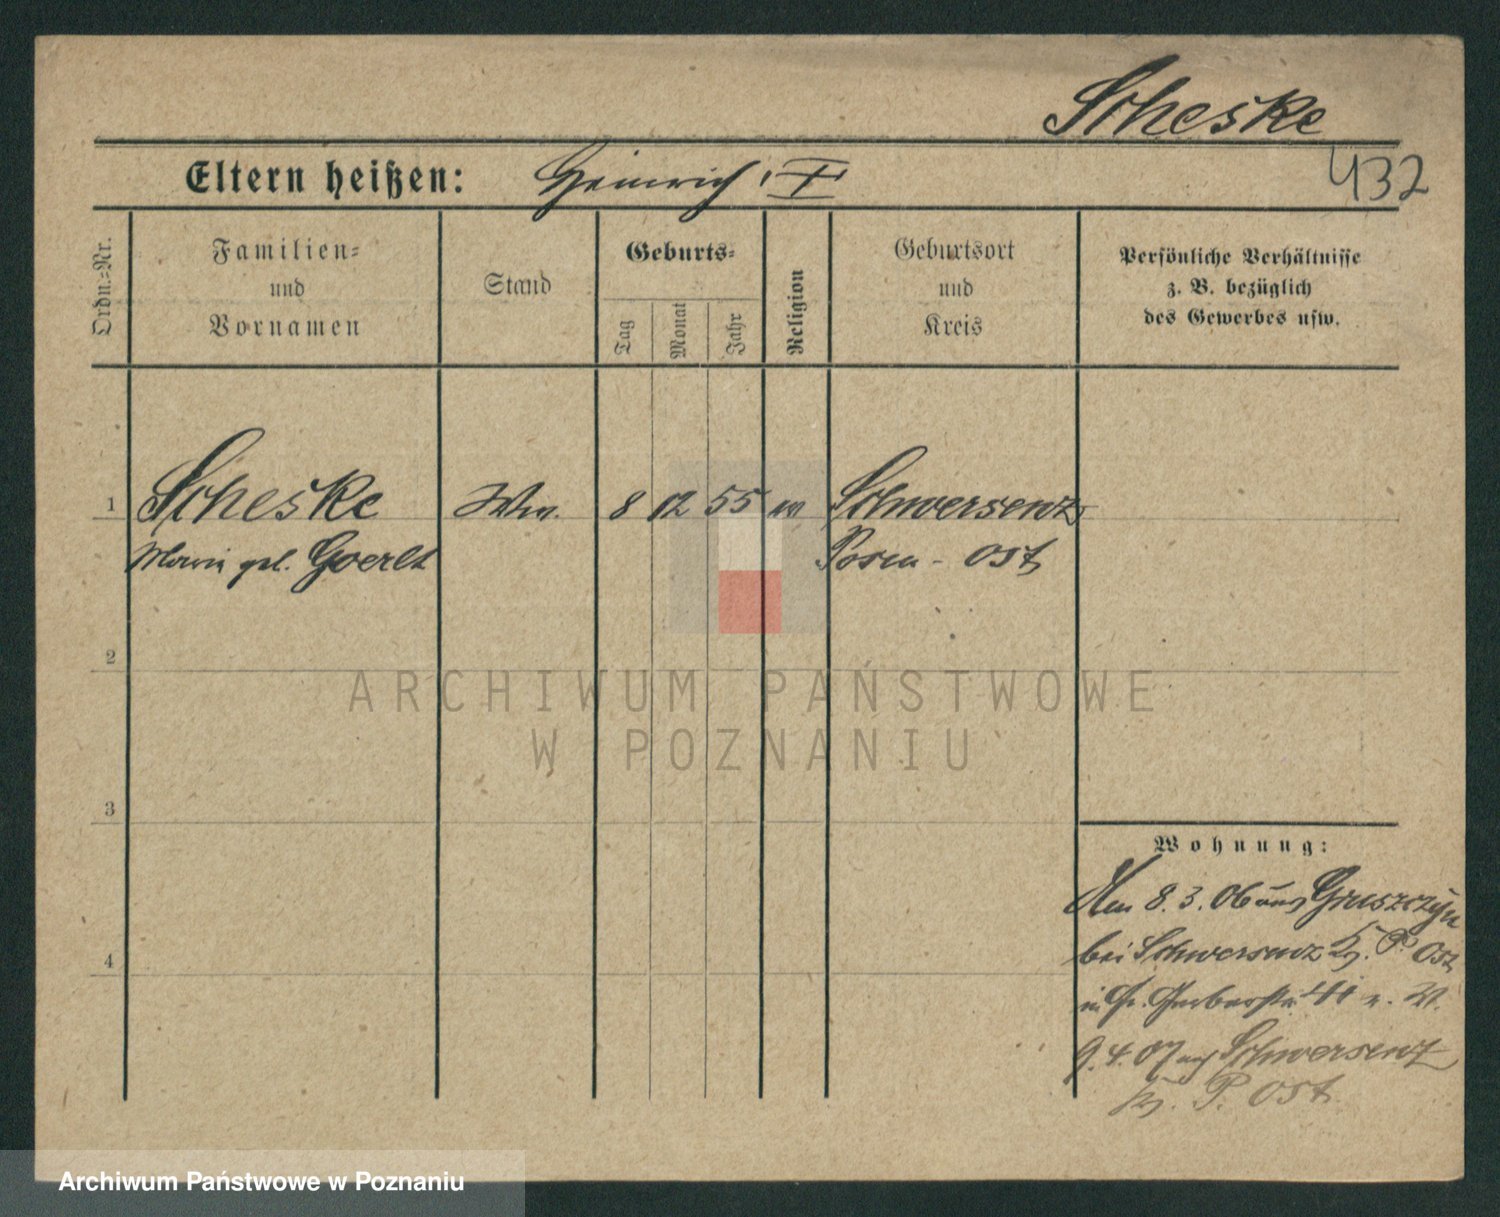 Scheske
Eltern heißen: Heinrich,
432
Ordn.=Nr.
Familien=
und
Vornamen
Stand
Geburts=
Tag
Monat
Jahr
Religion
Geburtsort
und
Kreis
Persönliche Verhältnisse
z. B. bezüglich
des Gewerbes usw.
1 Scheske Ww. 8 12 55 Schwersenz
geb. Goerlt Posen - Ost
2
ARCHIWUM PAŃSTWOWE
W POZNANIU
3
Wohnung:
8. 3. 06 aus Gruszczyn
bei Schwersenz Kr. P. Ost
4
in Gr. Gerberstr. 41
9. 4. 07 nach Schwersenz
Kr. P. Ost.
Archiwum Państwowe w Poznaniu